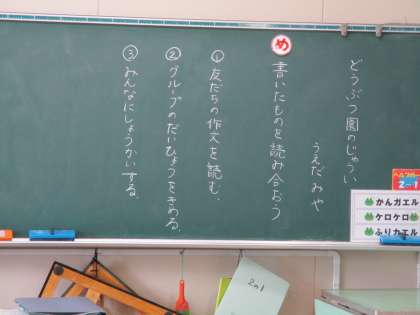 どうぶつ園のじゅうい
うえだみや
め
書いたものを読み合おう
①友だちの作文を読む。
②グループのだいひょうをきめる。
③みんなにしょうかいする。
2-1
かんガエル
ケロケロ
ふりカエル
2の1